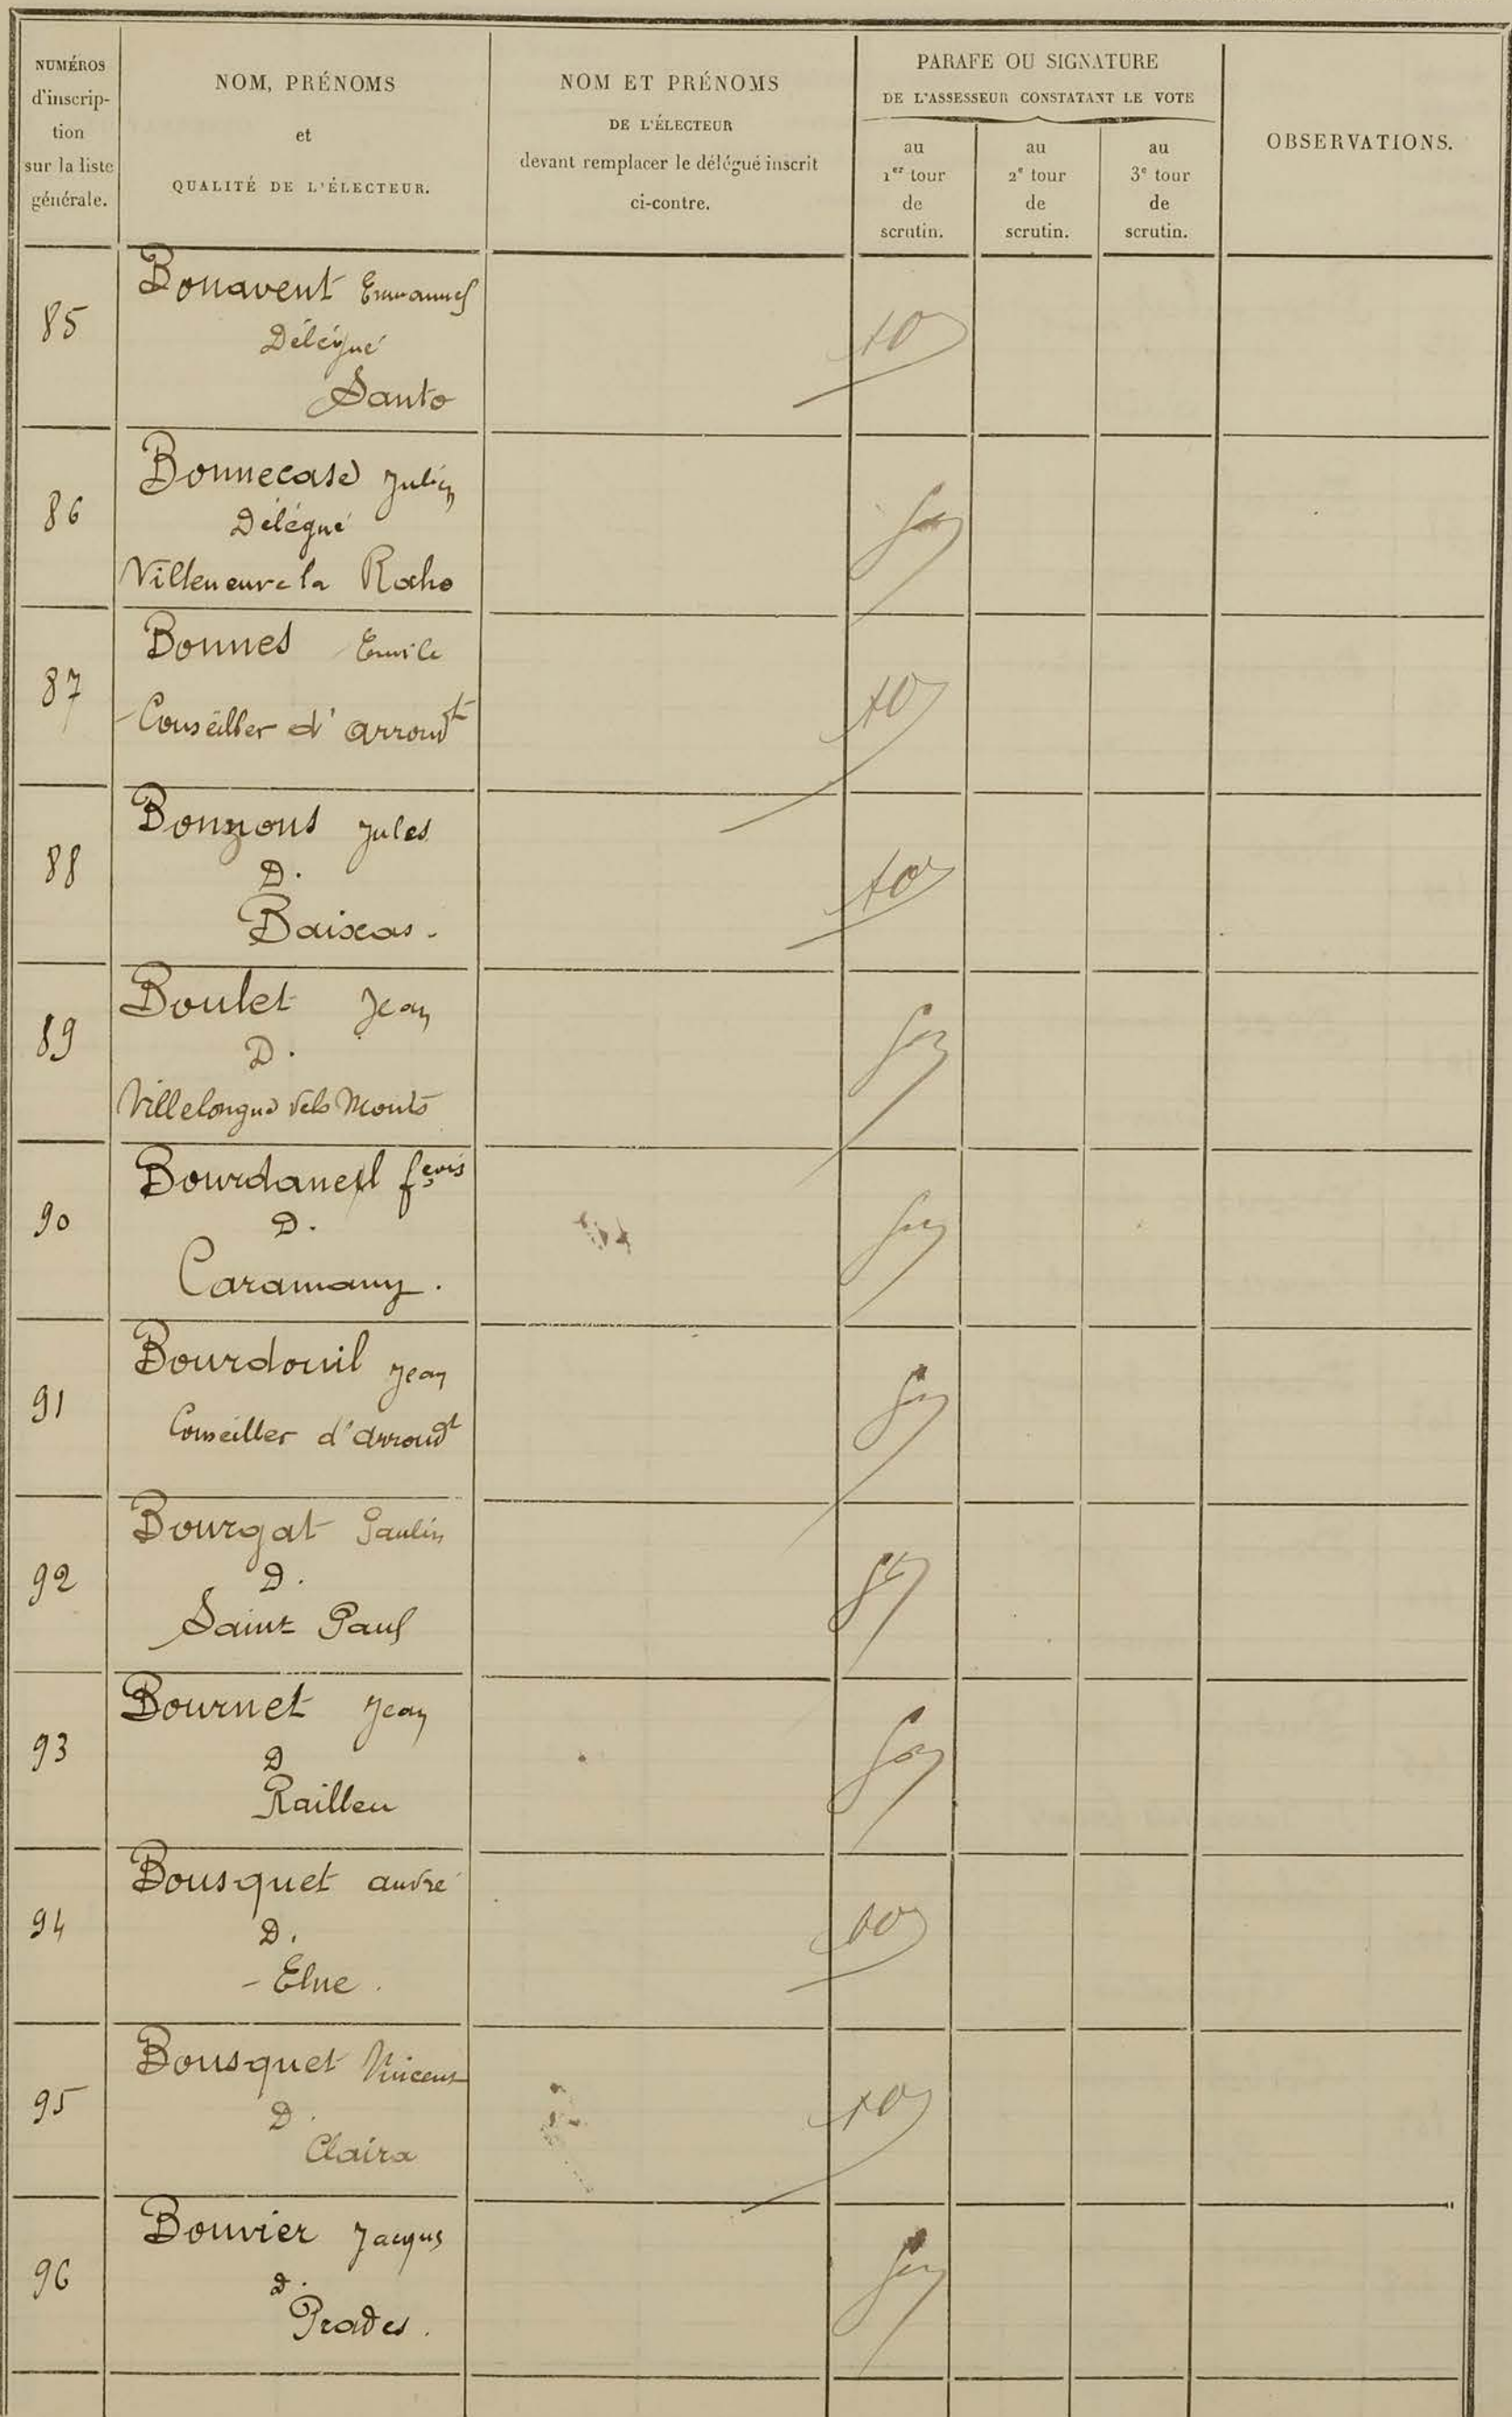 NUMÉROS
d'inscrip-
tion
sur la liste
générale.
NOM, PRÉNOMS
et
QUALITÉ DE L'ÉLECTEUR.
NOM ET PRÉNOMS
DE L'ÉLECTEUR
devant remplacer le délégué inscrit
ci-contre.
PARAFE OU SIGNATURE
DE L'ASSESSEUR CONSTATANT LE VOTE
au
1er tour
de
scrutin.
au
2e tour
de
scrutin.
au
3e tour
de
scrutin.
OBSERVATIONS.
85
Bonavent Emmanuel
Délégué
Sauto
86
Bonnecase Julien
Délégué
Villeneuve la Raho
87
Bonnes Emile
Conseiller d'arrondt
88
Bonzons Jules
D.
Baixas.
89
Boulet Jean
D.
Villelongue dels Monts
90
Bourdaneil fçois
D.
Caramany.
91
Bourdouil Jean
Conseiller d'arrondt
92
Bourgat Paulin
D.
Saint Paul
93
Bournet Jean
D
Railleu
94
Bousquet andré
D.
- Elne.
95
Bousquet Vincent
D.
Claira
96
Bouvier Jacques
D.
Prades.